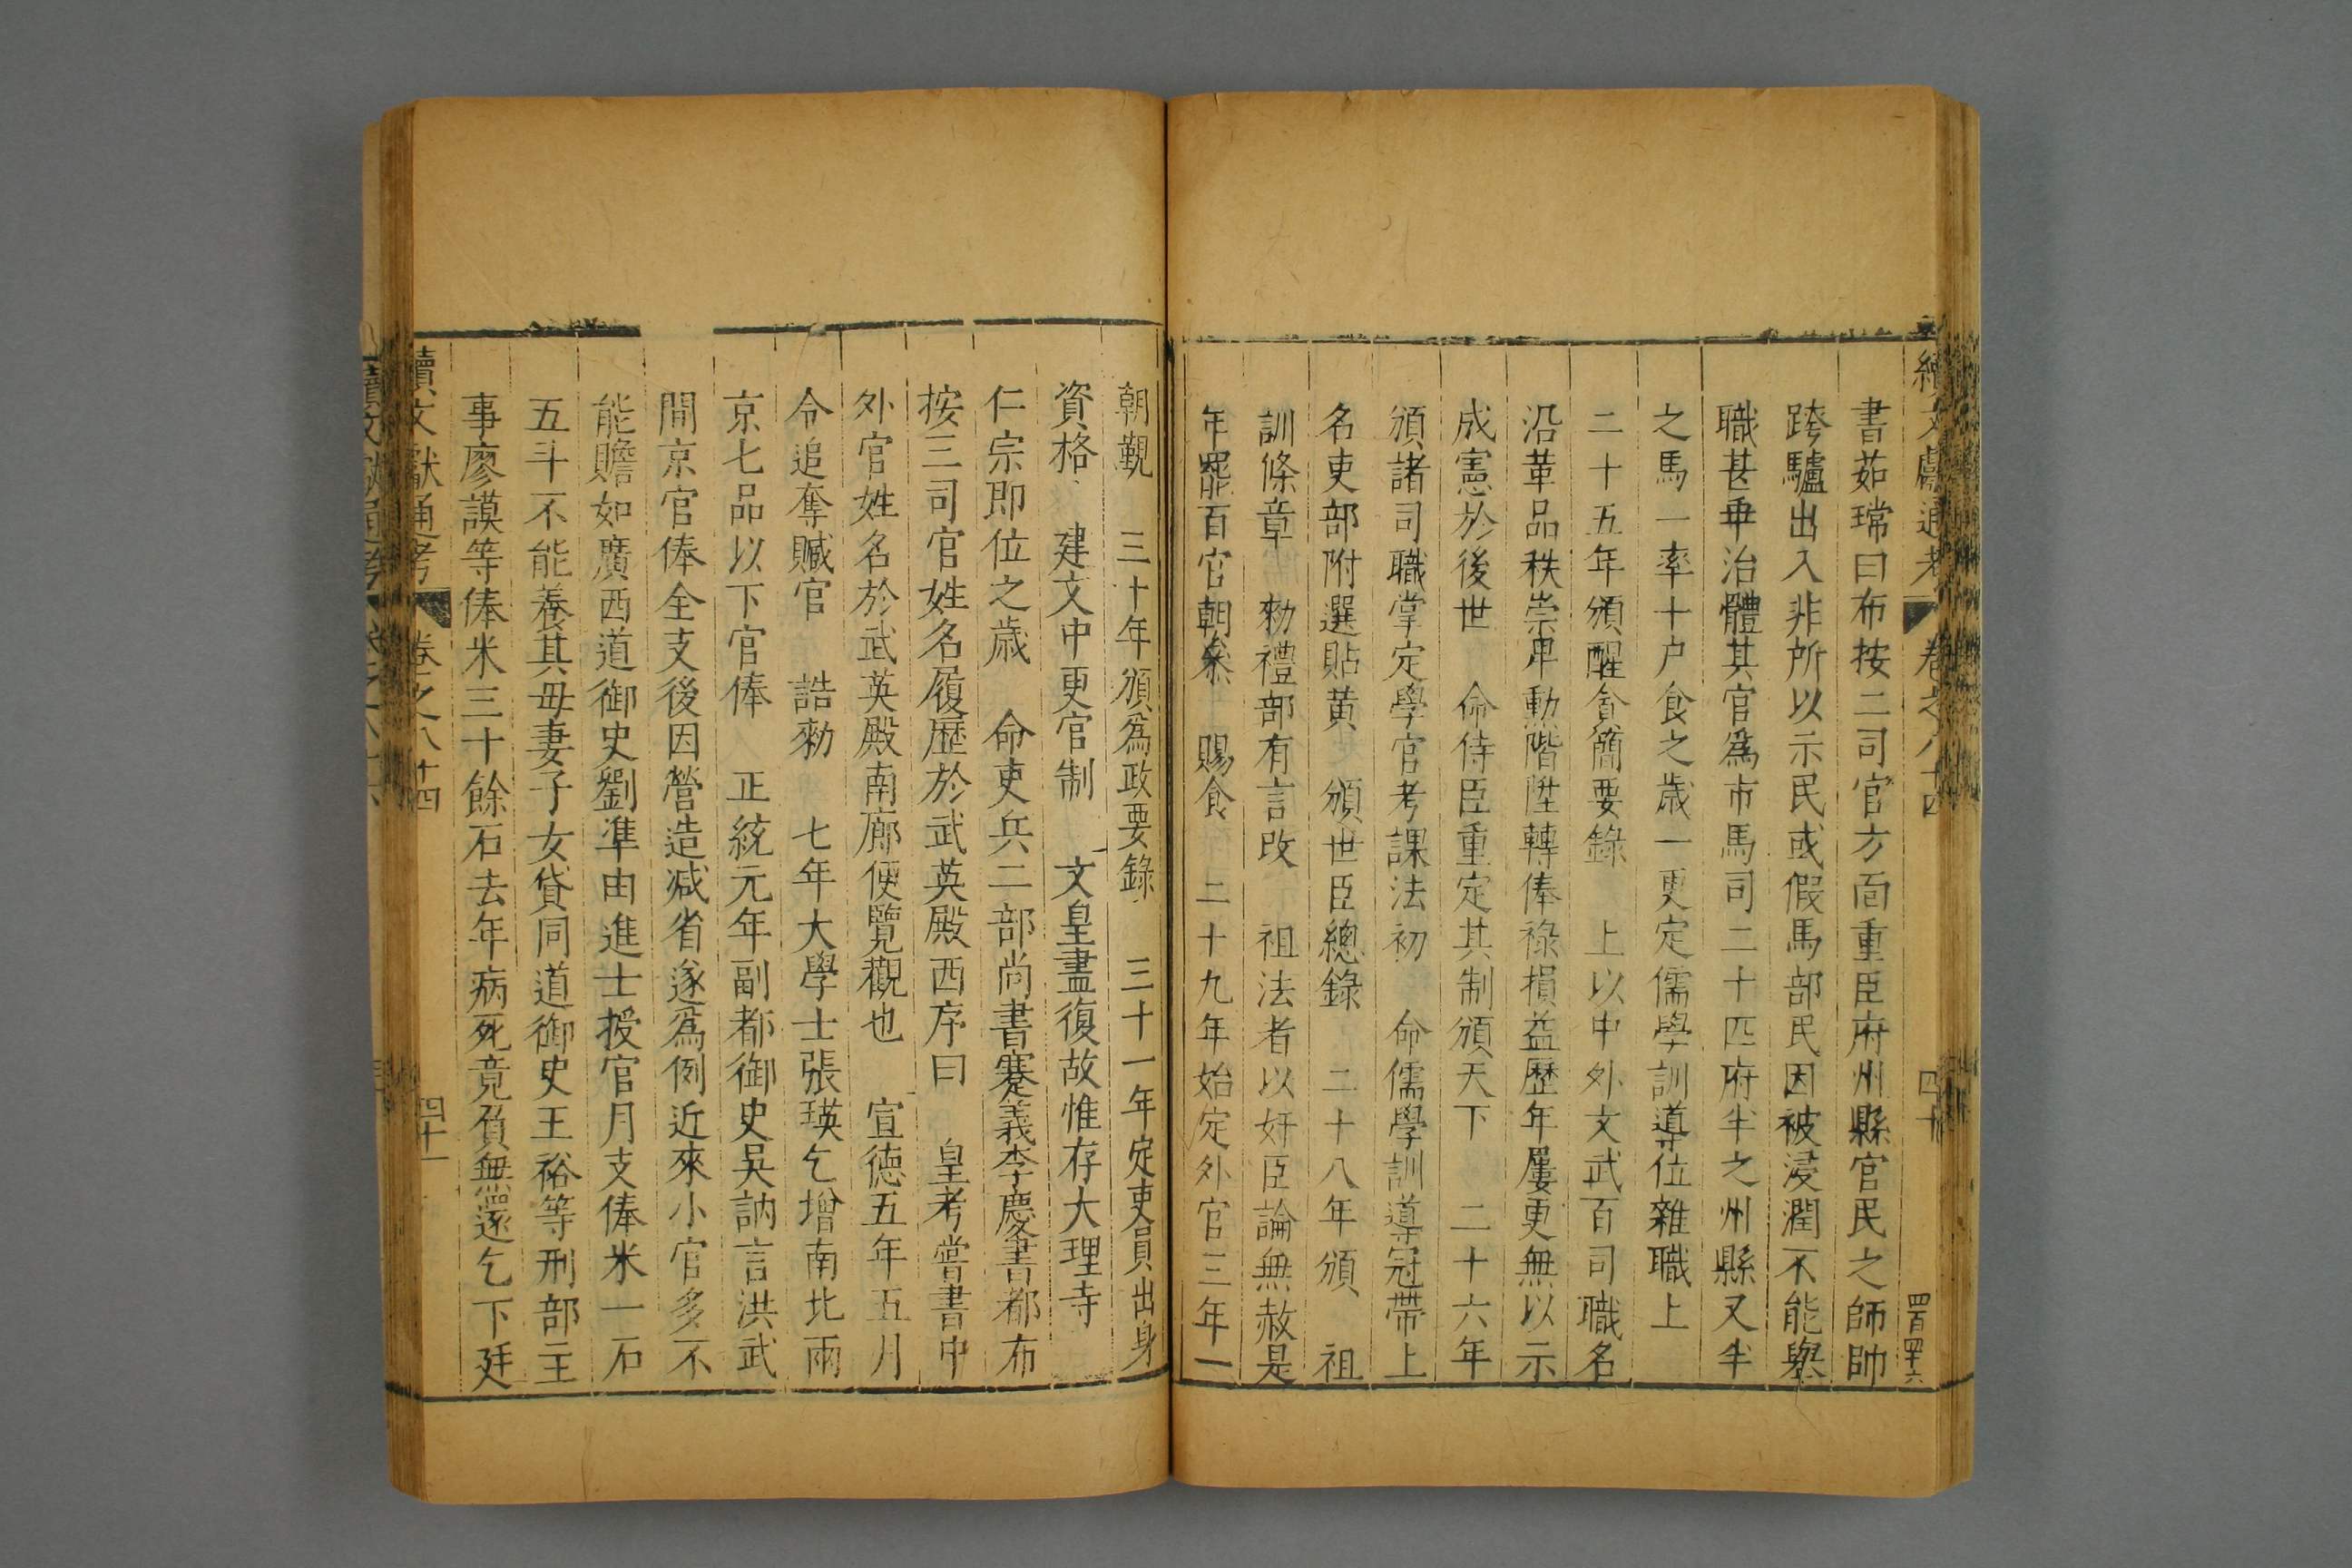 續文獻通考 卷之八十四 四十 四百四十六
書茹瑺曰布按二司官方面重臣府州縣官民之師帥
跨驢出入非所以示民或假馬部民因被浸潤不能舉
職甚乖治體其官爲市馬司二十匹府半之州縣又半
之馬一率十户食之歲一更定儒學訓導位雜職上
二十五年頒醒貪簡要錄 上以中外文武百司職名
沿革品秩崇卑勳階陞轉俸祿損益歷年屢更無以示
成憲於後世 命侍臣重定其制頒天下 二十六年
頒諸司職掌定學官考課法初 命儒學訓導冠帶上
名吏部附選貼黄 頒世臣總錄 二十八年頒 祖
訓條章 勑禮部有言改 祖法者以奸臣論無赦是
年罷百官朝叅 賜食 二十九年始定外官三年一
朝覲 三十年頒爲政要錄 三十一年定吏員出身
資格 建文中更官制 文皇盡復故惟存大理寺
仁宗即位之歲 命吏兵二部尚書蹇義李慶書都布
按三司官姓名履歷於武英殿西序曰 皇考嘗書中
外官姓名於武英殿南廊便覽觀也 宣德五年五月
令追奪贓官 誥勑 七年大學士張瑛乞增南北兩
京七品以下官俸 正統元年副都御史吳訥言洪武
間京官俸全支後因營造减省遂爲例近來小官多不
能贍如廣西道御史劉凖由進士授官月支俸米一石
五斗不能養其母妻子女貸同道御史王裕等刑部主
事廖謨等俸米三十餘石去年病死竟負無還乞下廷
續文獻通考 卷之八十四 四十一